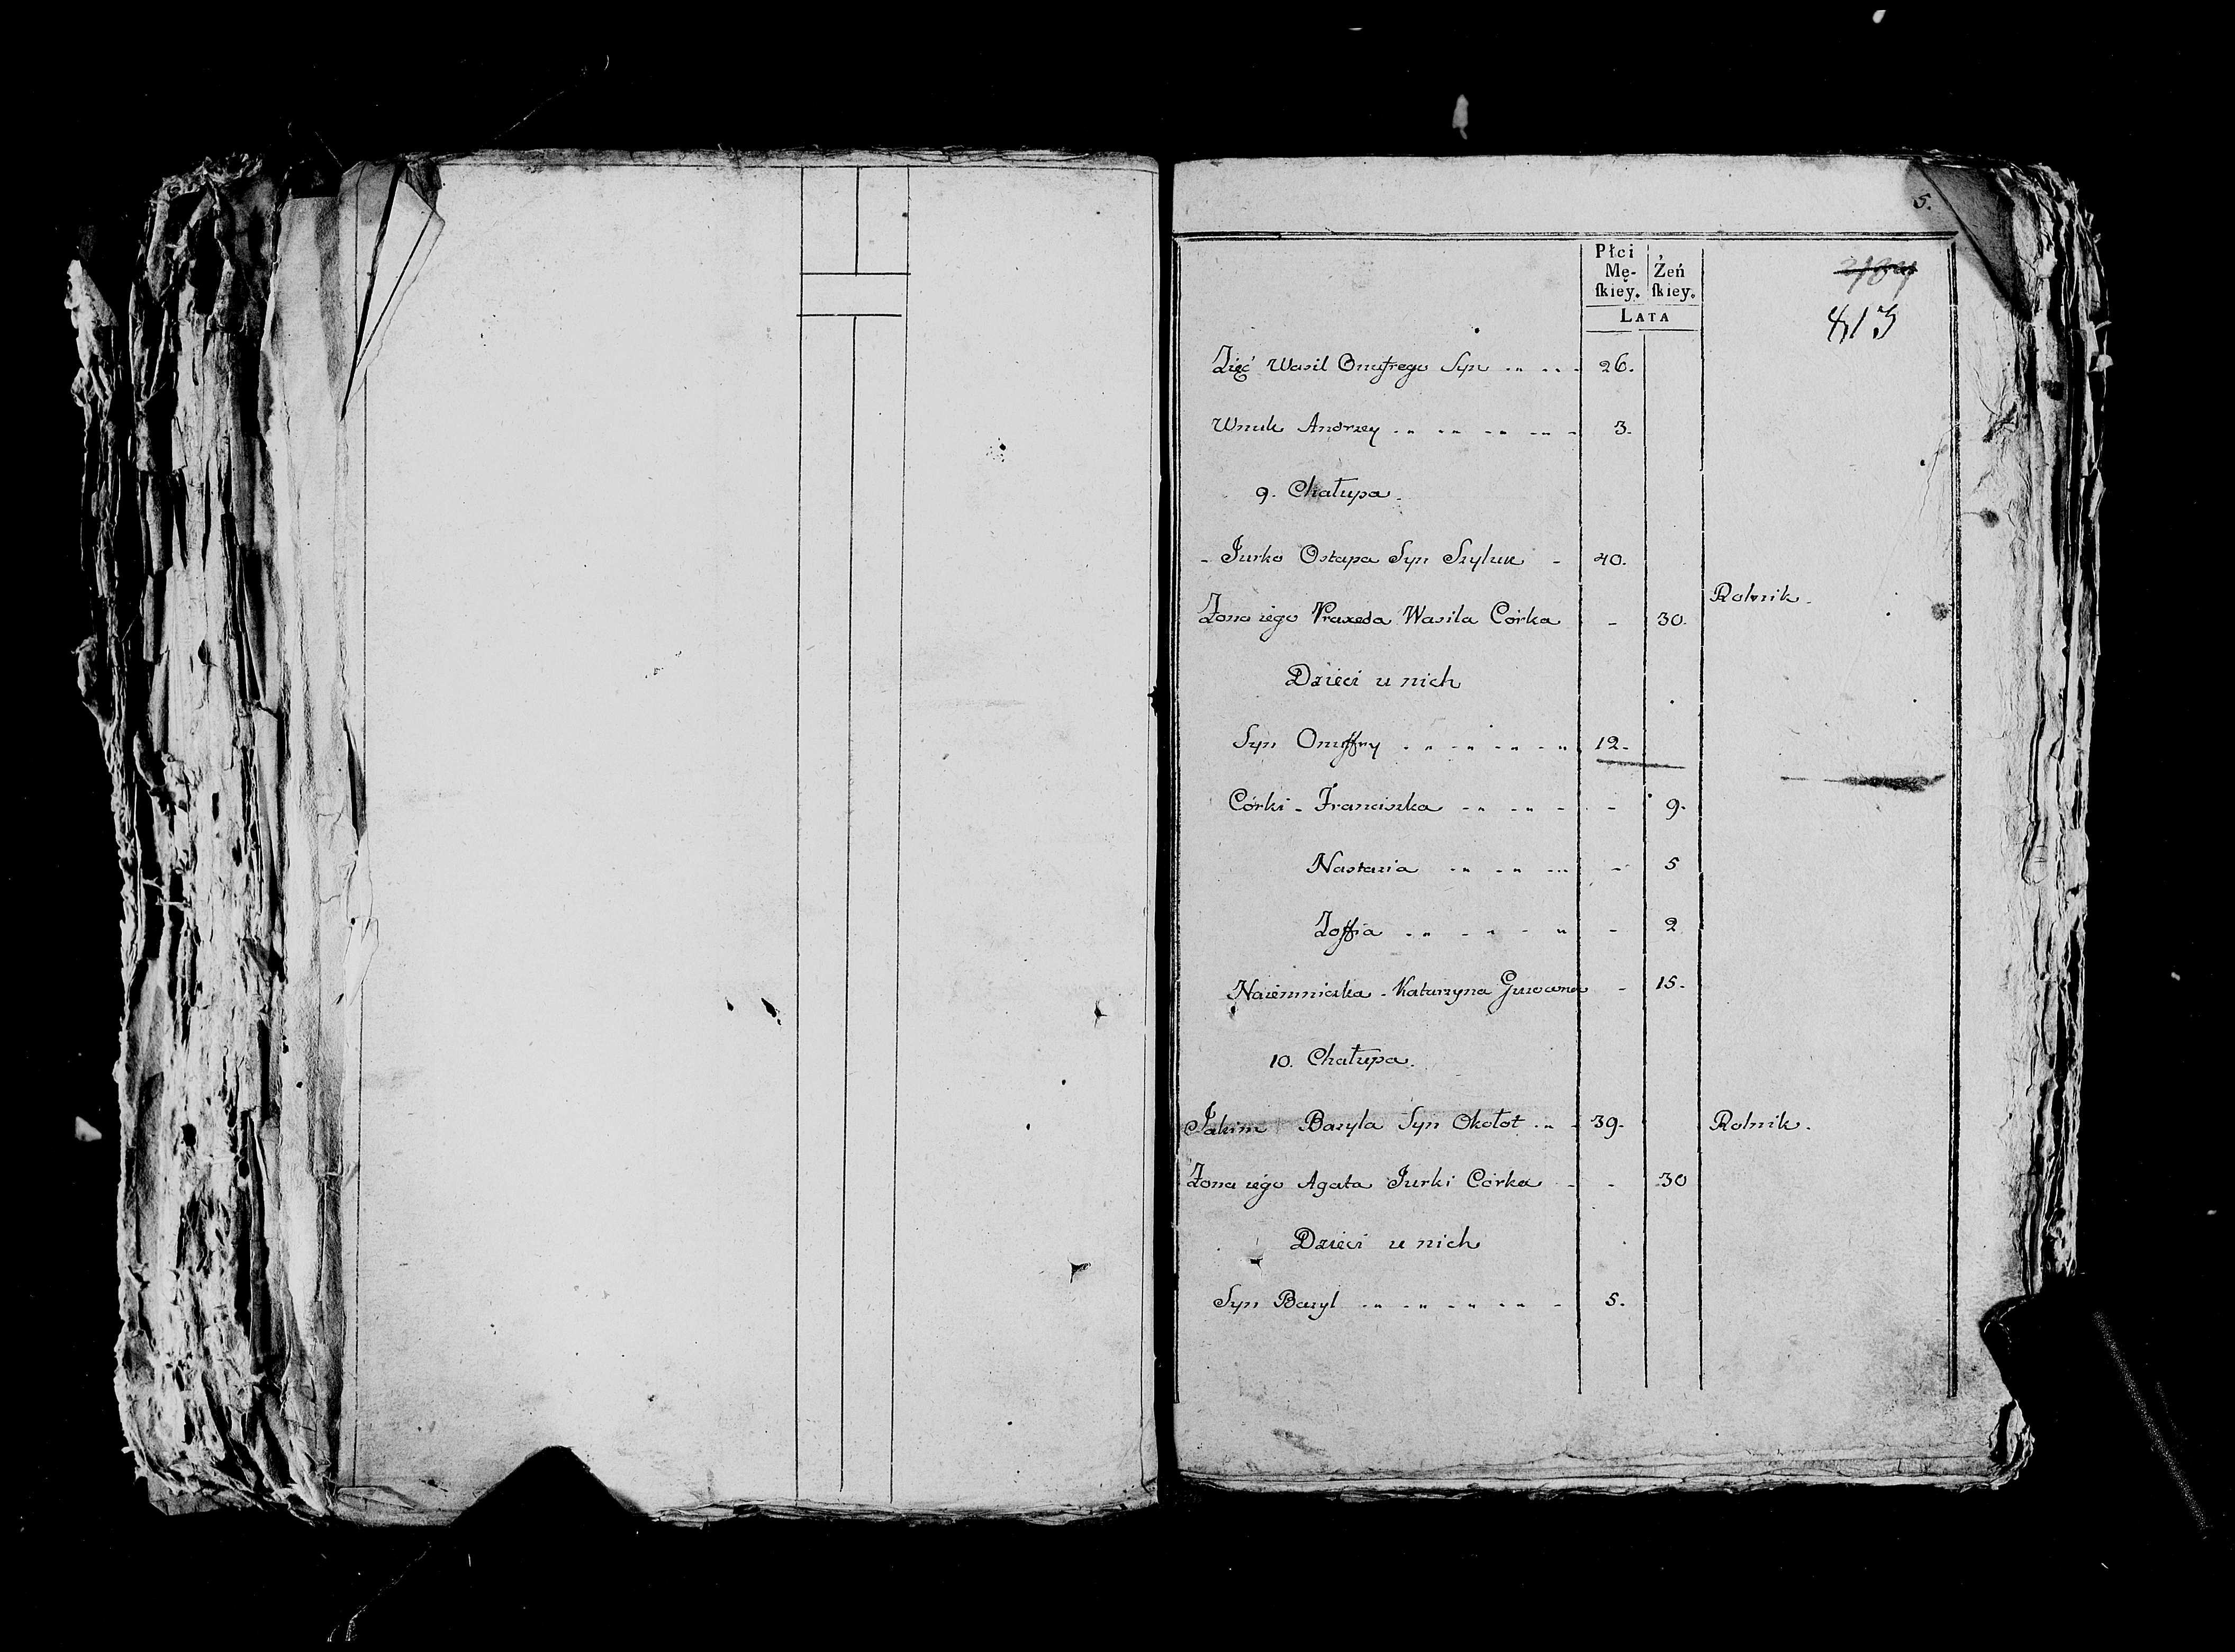 5.
Płci
Mę- Żeń
skiey. skiey.
LATA
813
Zięć Wasil Onufrego Syn 26.
Wnuk Andrzey 3.
9. Chałupa.
- Jurko Ostapa Syn Szyluk - 40.
Rolnik.
Żona iego Praxeda Wasila Córka - 30.
Dzieci u nich
Syn Onuffry 12.
Córki - Franciszka - 9.
Nastazia - 5
Zoffia - 2
Naiemniczka - Katarzyna - 15.
10. Chałupa.
Jakim Bazyla Syn Okołot 39. Rolnik.
Żona iego Agata Jurki Córka - 30
Dzieci u nich
Syn Bazyl 5.